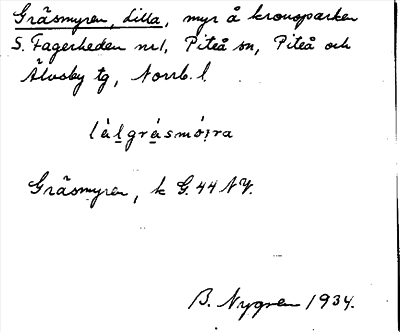 Gräsmyren, Lilla, myr å kronoparken
S. Fagerheden nr 1, Piteå sn, Piteå och
Älvsby tg, Norrb. l.
làlgràsmóira
Gräsmyren, k G. 44 NV.
B. Nygren 1934.